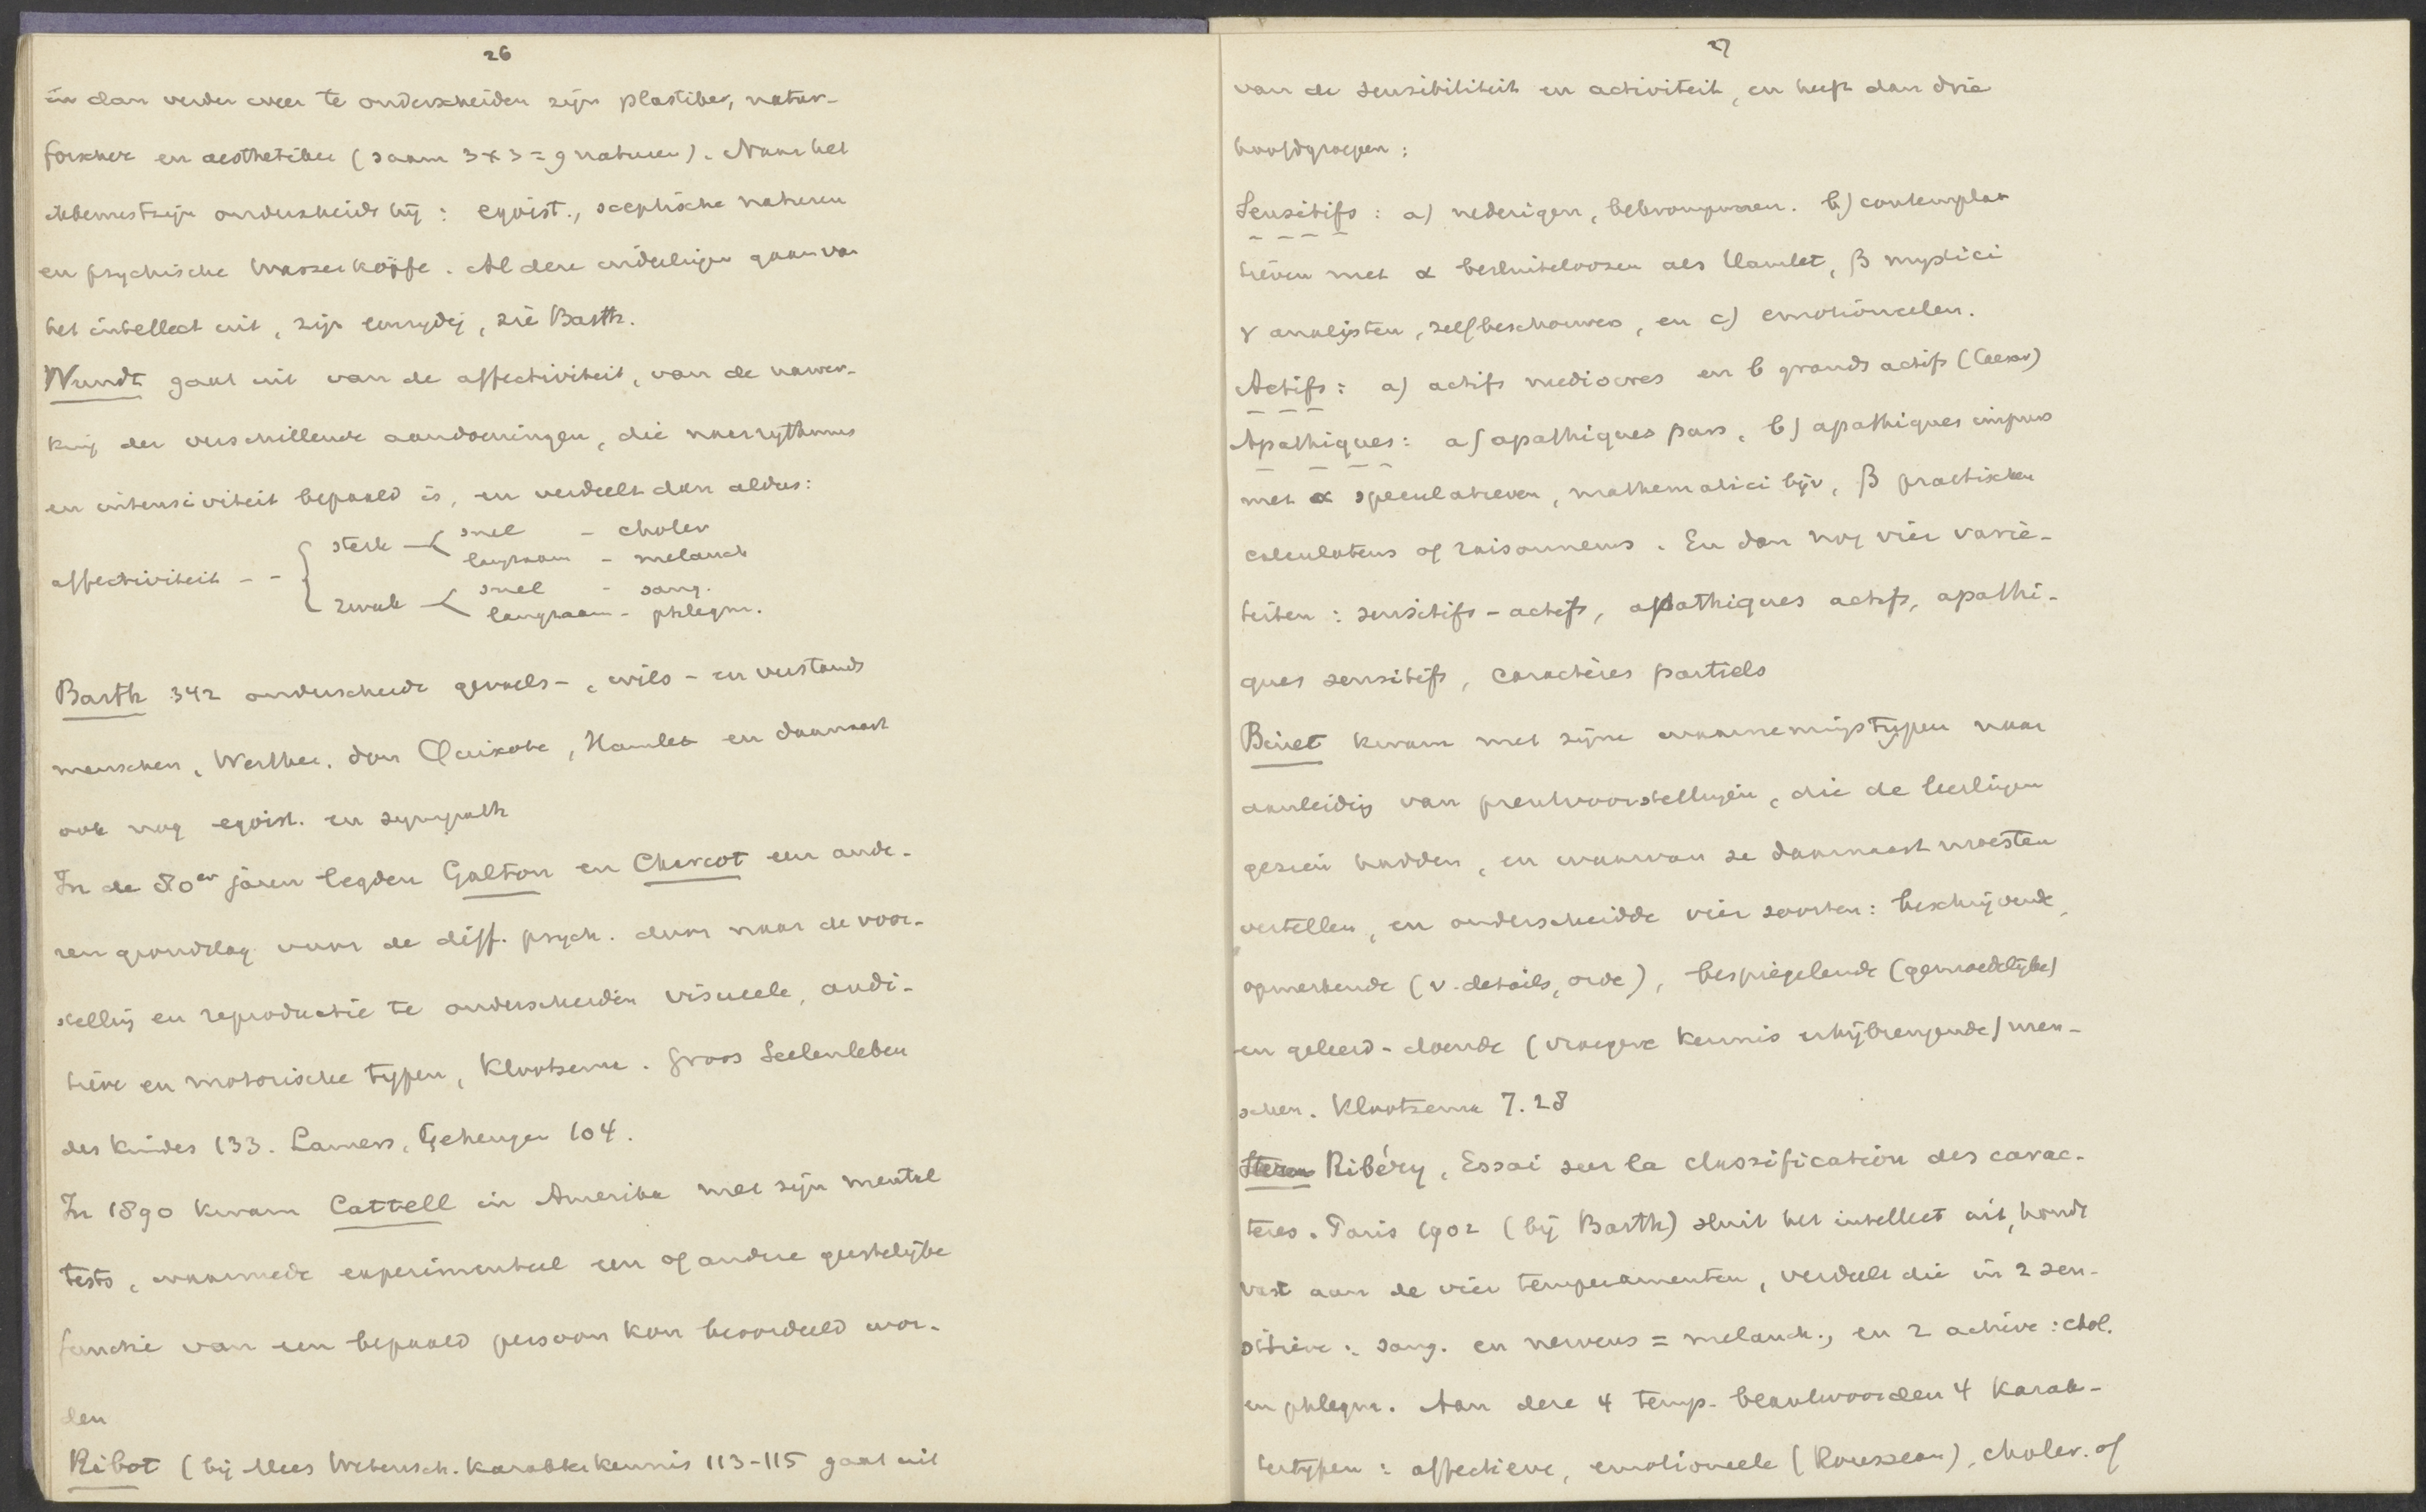 26
in dan verder weer te onderscheiden zijn plastiker, natur-
forscher en aesthetiker (saam 3 x 3 = 9 naturen). Naar het
ikbewustzijn onderscheidt hij: egoist., sceptische naturen
en psychische Wasserköpfe. Al deze indeelingen gaan van
het intellect uit, zijn eenzydig, zie Barth.
Wundt gaat uit van de affectiviteit, van de uitwer-
king der verschillende aandoeningen, die naar rythmus
en intensiviteit bepaald is, en verdeelt dan aldus:
affectiviteit -- { sterk < snel - choler
langzaam - melanch
zwak < snel - sang.
langzaam - phlegm.
Barth 342 onderscheidt gevoels-, wils- en verstands
menschen, Werther, don Quixote, Hamlet en daarnaast
ook nog egoist. en sympath
In de 80er jaren legden Galton en Charcot een ande-
ren grondslag voor de diff. psych. door naar de voor-
stelling en reproductie te onderscheiden visueele, audi-
tieve en motorische typen, Klootsema. Groos Seelenleben
des Kindes 133. Lamers, Geheugen 104.
In 1890 kwam Cattell in Amerika met zijn mental
tests, waarmede experimenteel een of andere geestelijke
functie van een bepaald persoon kon beoordeeld wor-
den
Ribot (bij Mees Wetensch. Karakterkennis 113-115 gaat uit
27
van de sensibiliteit en activiteit, en heeft dan drie
hoofdgroepen:
Sensitifs: a) nederigen, bekrompenen. b) contempla-
tieven met α besluiteloozen als Hamlet, β mystici
γ analysten, zelfbeschouwers, en c) emotioneelen.
Actifs: a) actifs mediocres en b grands actifs (Caesar)
Apathiques: a) apathiques purs, b) apathiques impurs
met α speculatieven, mathematici bijv, β practischen
calculateurs of raisonneurs. En dan nog vier varië-
teiten: sensitifs-actifs, apathiques actifs, apathi-
ques sensitifs, caractères partiels
Binet kwam met zijne waarnemingstypen naar
aanleiding van prentvoorstellingen, die de leerlingen
gezien hadden, en waarvan ze daarnaast moesten
vertellen, en onderscheidde vier soorten: beschrijvende,
opmerkende (v. details, orde), bespiegelende (gemoedelijke)
en geleerd-doende (vroegere kennis erbijbrengende) men-
schen. Klootsema 7.28
Stern Ribéry, Essai sur la classification des carac-
tères. Paris 1902 (bij Barth) sluit het intellect uit, houdt
vast aan de vier temperamenten, verdeelt die in 2 sen-
sitieve: sang. en nerveus = melanch., en 2 actieve: chol.
en phlegm. Aan deze 4 temp. beantwoorden 4 karak-
tertypen: affectieve, emotioneele (Rousseau), choler. of